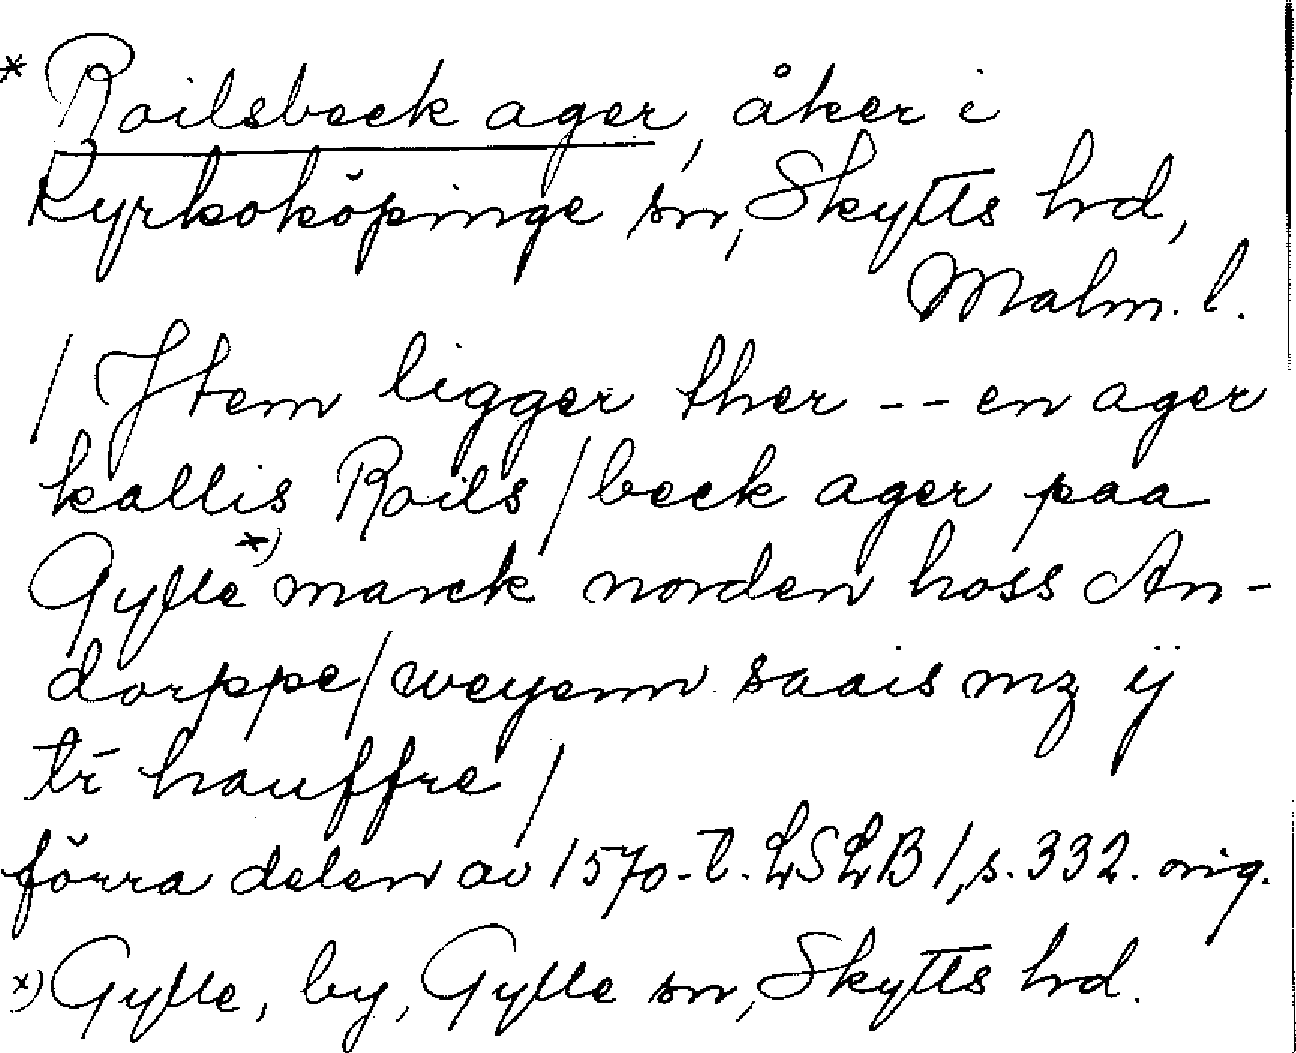 * Roilsbeck ager, åker i
Kyrkoköpinge sn, Skytts hd,
Malm. l.
/ Jtem ligger ther -- en ager
kallis Roils / beck ager paa
Gylle x) marck norden hoss An-
dorppe / weyenn saais mz ij
tr̄ hauffre /
förra delen av 1570-t. LSLB 1, s. 332. orig.
x) Gylle, by, Gylle sn, Skytts hd.